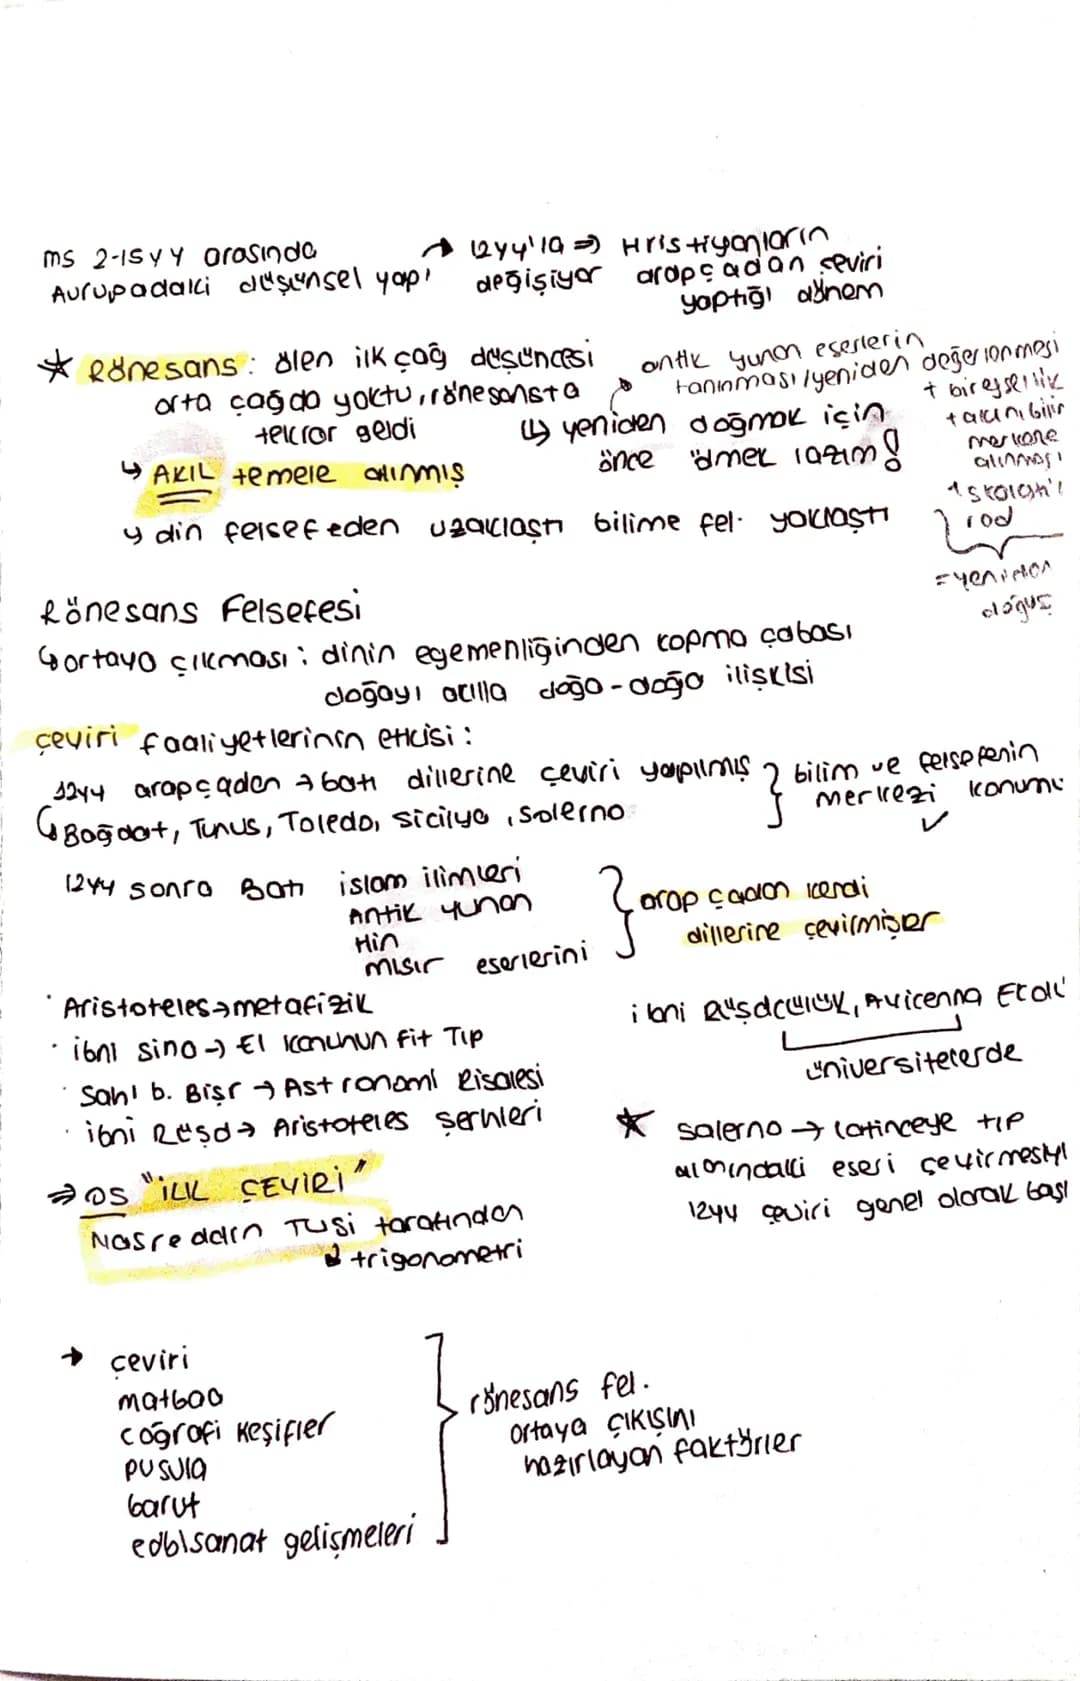 MS 2-15 yy arasında
Avrupadaki düşünsel yapı
→ 12yy'la ⇒ Hristiyanların
değişiyor arapçadan çeviri
yaptığı dönem
★ Rönesans: ölen ilk çağ düşüncesi
orta çağda yoktu, rönesansta
tekrar geldi
↳ AKIL temele alınmış
antik yunan eserlerin
tanınması/yeniden değerlenmesi
+ bireysellik
+ akıl bilir
merkeze
alınması
+ skolasti'i
rod
= yeniden
doğuş
↳ yeniden doğmak için
önce ölmek lazım!
↳ din felsefeden uzaklaştı bilime fel. yaklaştı
Rönesans Felsefesi
↳ ortaya çıkması: dinin egemenliğinden kopma çabası
doğayı akılla doğa-doğa ilişkisi
çeviri faaliyetlerinin etkisi:
1244 arapçadan → batı dillerine çeviri yapılmış
↳ Bağdat, Tunus, Toledo, Sicilya, Solerno
bilim ve felsefenin
merkezi konumu
✓
1244 sonra Batı islam ilimleri
Antik yunan
Hin
mısır eserlerini
arap çadan kendi
dillerine çevirmişler
· Aristoteles → metafizik
· ibni sina → El kanunun Fit Tıp
· Sahl b. Bişr → Astronomi Risalesi
· ibni Rüşd → Aristoteles şerhleri
ibni Rüşdcülük, Avicenna Ekolü
üniversitelerde
⇒ OS "İLK ÇEVİRİ"
Nasreddin Tusi tarafından
trigonometri
★ salerno → latinceye tıp
alanındaki eseri çevirmesiyl
1244 çeviri genel olarak başl
→ çeviri
matbaa
coğrafi keşifler
pusula
barut
edb\sanat gelişmeleri
rönesans fel.
ortaya çıkışını
hazırlayan faktörler